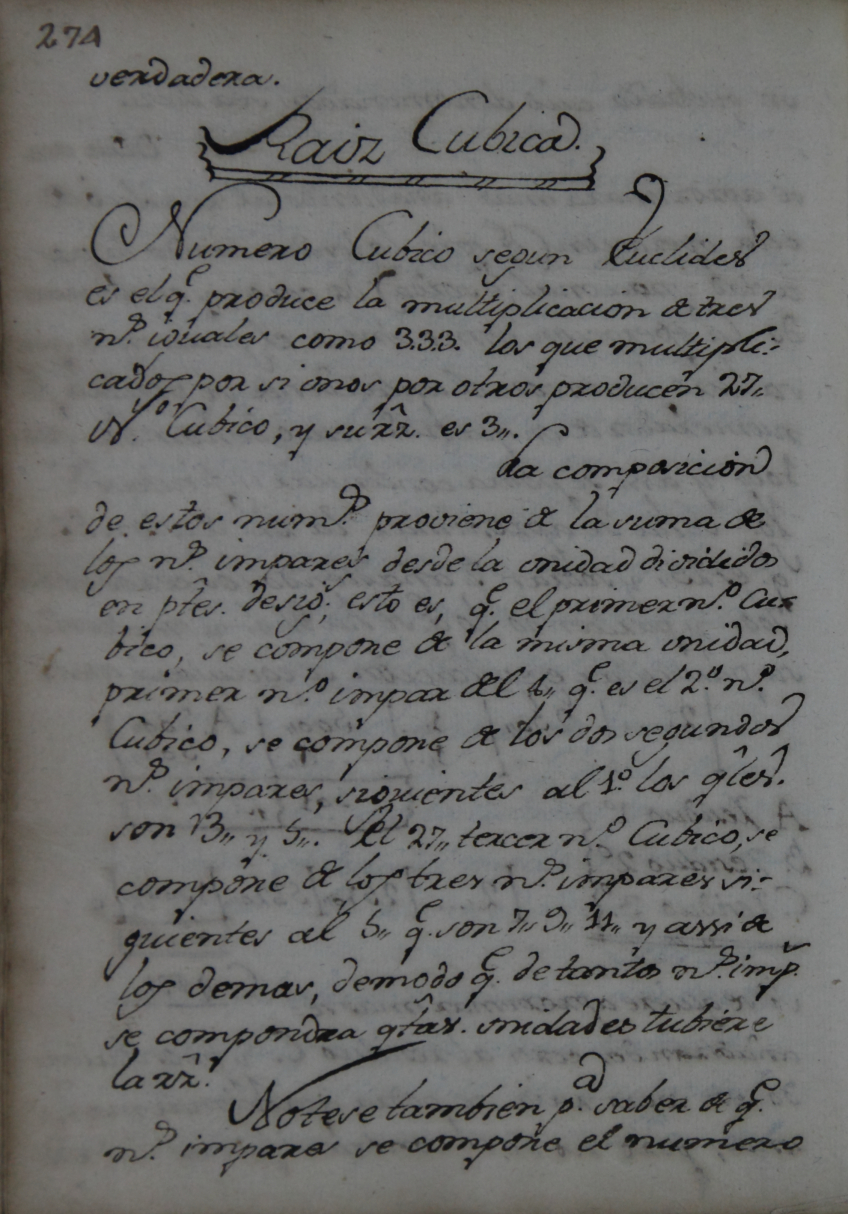 274
verdadera.
Raiz Cubica.
Numero Cubico segun Euclides
es el q.e produce la multiplicacion de tres
n.s iguales como 3.3.3. los que multipli-
cados por si onos por otros producen 27,,
N.o Cubico, y su rz. es 3,,.
La composicion
de estos num.s proviene de la suma de
los n.s impares desde la vnidad dividido
en ptes. desig.s esto es, q.e el primer n.o Cu-
bico, se compone de la misma vnidad,
primer n.o impar del q.e es el 2.o n.o
Cubico, se compone de los dos segundos
n.s impares, siguientes al 1.o los qles.
son 3,, y 5,,. El 27,, tercer n.o Cubico, se
compone de los tres n.s impares si-
guientes al 5,, q.e son 7,, 9,, 11,, y assi de
los demas, demodo q.e de tantos n.s imp.s
se compondra qtas. vnidades tubiere
la rz.
Notese tambien p.a saber de q.e
n.s impares se compone el numero